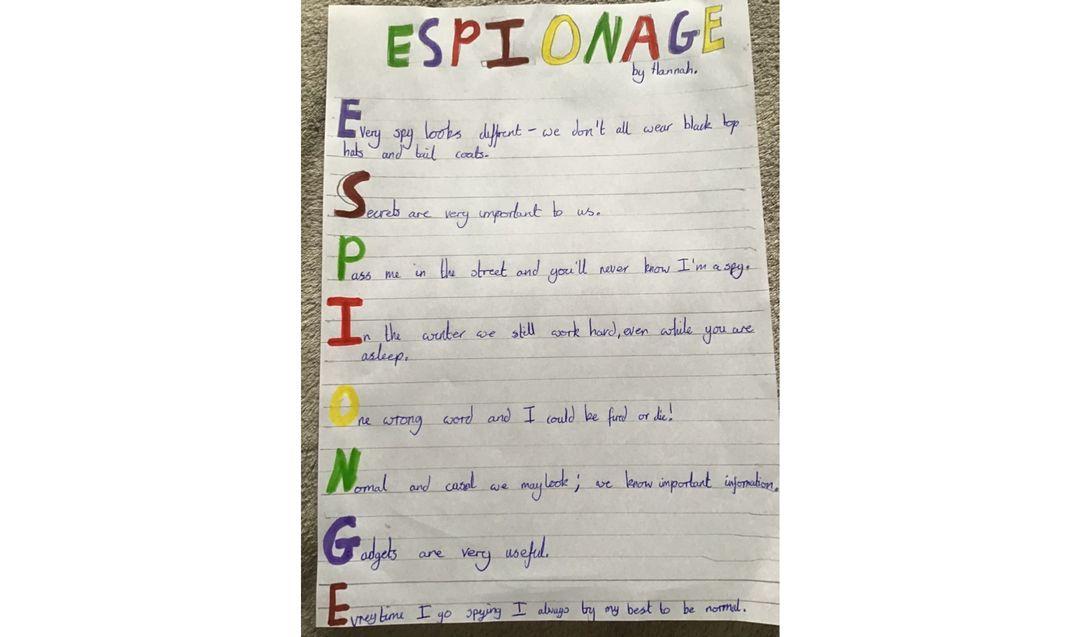 ESPIONAGE
by Hannah.
Every spy looks diffrent - we don't all wear black top
hats and tail coats.
Secrets are very important to us.
Pass me in the street and you'll never know I'm a spy.
In the winter we still work hard, even while you are
asleep.
One wrong word and I could be fired or die!
Normal and casual we may look; we know important information.
Gadgets are very useful.
Evreytime I go spying I always try my best to be normal.